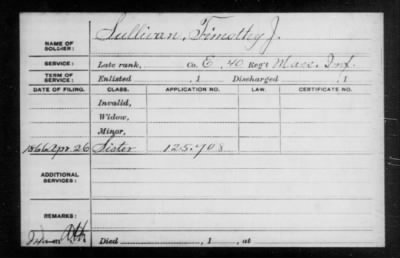 NAME OF SOLDIER: Sullivan, Timothy J.
SERVICE: Late rank, Co. E, 40 Reg't Mass. Inf.
TERM OF SERVICE: Enlisted , 1 Discharged , 1
DATE OF FILING. CLASS. APPLICATION NO. LAW. CERTIFICATE NO.
Invalid,
Widow,
Minor,
1866 Apr. 26 Sister 125.708
ADDITIONAL SERVICES:
REMARKS:
Died , 1 , at